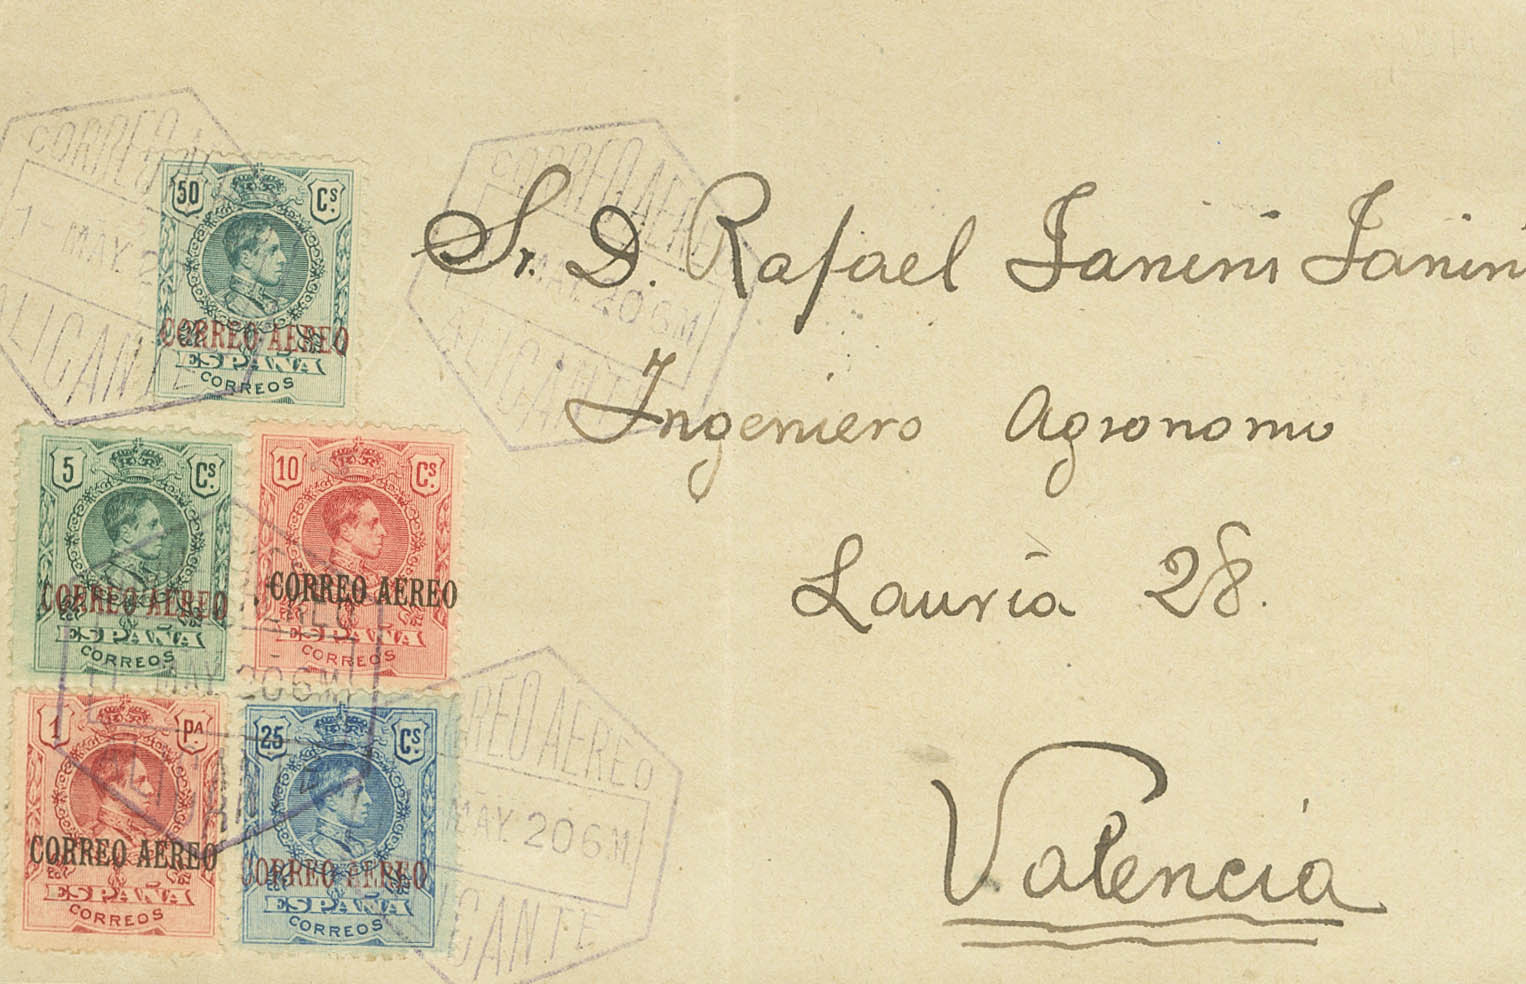 CORREO AEREO
1 - MAY. 20 6 M.
ALICANTE
CORREO AEREO
MAY. 20 6 M.
ALICANTE
50 Cs.
CORREO AEREO
ESPAÑA
CORREOS
Sr. D. Rafael Janini Janini
Ingeniero Agronomo
Lauria 28.
Valencia
5 Cs.
CORREO AEREO
ESPAÑA
CORREOS
10 Cs.
CORREO AEREO
ESPAÑA
CORREOS
MAY. 20 6 M.
1 PA
CORREO AEREO
ESPAÑA
CORREOS
25 Cs.
CORREO AEREO
ESPAÑA
CORREOS
CORREO AEREO
MAY. 20 6 M.
ALICANTE